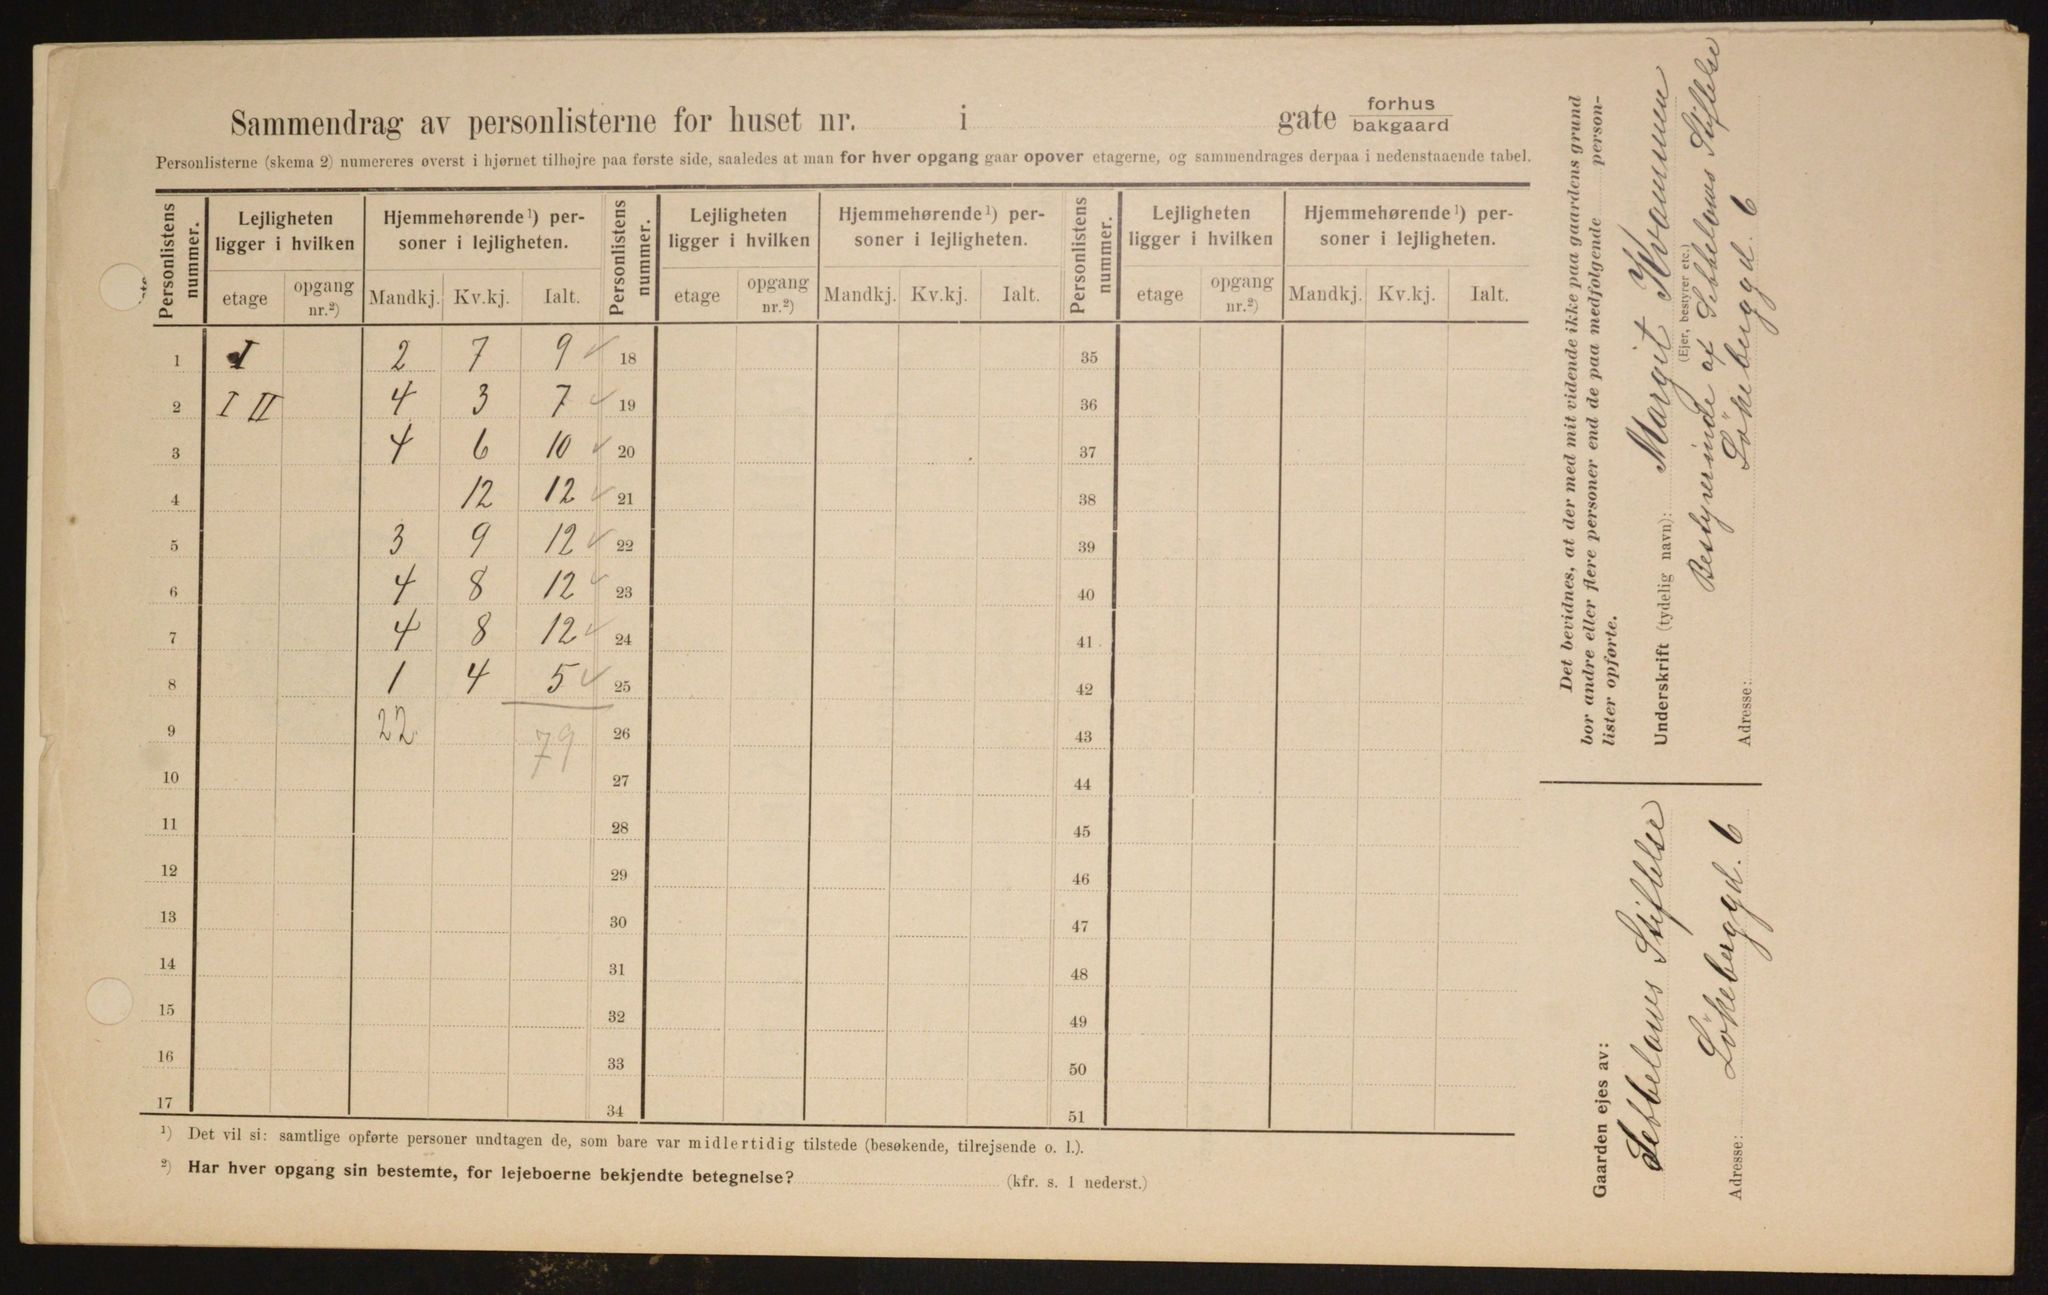 Sammendrag av personlisterne for huset nr. i gate forhus bakgaard
Personlisterne (skema 2) numereres øverst i hjørnet tilhøjre paa første side, saaledes at man for hver opgang gaar opover etagerne, og sammendrages derpaa i nedenstaaende tabel.
Personlistens nummer. Lejligheten ligger i hvilken Hjemmehørende ¹) personer i lejligheten. Personlistens nummer. Lejligheten ligger i hvilken Hjemmehørende ¹) personer i lejligheten. Personlistens nummer. Lejligheten ligger i hvilken Hjemmehørende ¹) personer i lejligheten.
etage opgang nr.²) Mandkj. Kv.kj. Ialt. etage opgang nr.²) Mandkj. Kv.kj. Ialt. etage opgang nr.²) Mandkj. Kv.kj. Ialt.
1 I 2 7 9 ✓ 18 35
2 I II 4 3 7 ✓ 19 36
3 4 6 10 ✓ 20 37
4 12 12 ✓ 21 38
5 3 9 12 ✓ 22 39
6 4 8 12 ✓ 23 40
7 4 8 12 ✓ 24 41
8 1 4 5 ✓ 25 42
9 22 79 26 43
10 27 44
11 28 45
12 29 46
13 30 47
14 31 48
15 32 49
16 33 50
17 34 51
¹) Det vil si: samtlige opførte personer undtagen de, som bare var midlertidig tilstede (besøkende, tilrejsende o. l.).
²) Har hver opgang sin bestemte, for lejeboerne bekjendte betegnelse? (kfr. s. 1 nederst.)
Det bevidnes, at der med mit vidende ikke paa gaardens grund
bor andre eller flere personer end de paa medfølgende personlister opførte.
Underskrift (tydelig navn): Margit Kvamme
(Ejer, bestyrer etc.)
Bestyrerinde af Sebbelows Stiftelse
Adresse: Lökeberggd. 6
Gaarden ejes av:
Sebbelows Stiftelse
Adresse: Lökeberggd. 6